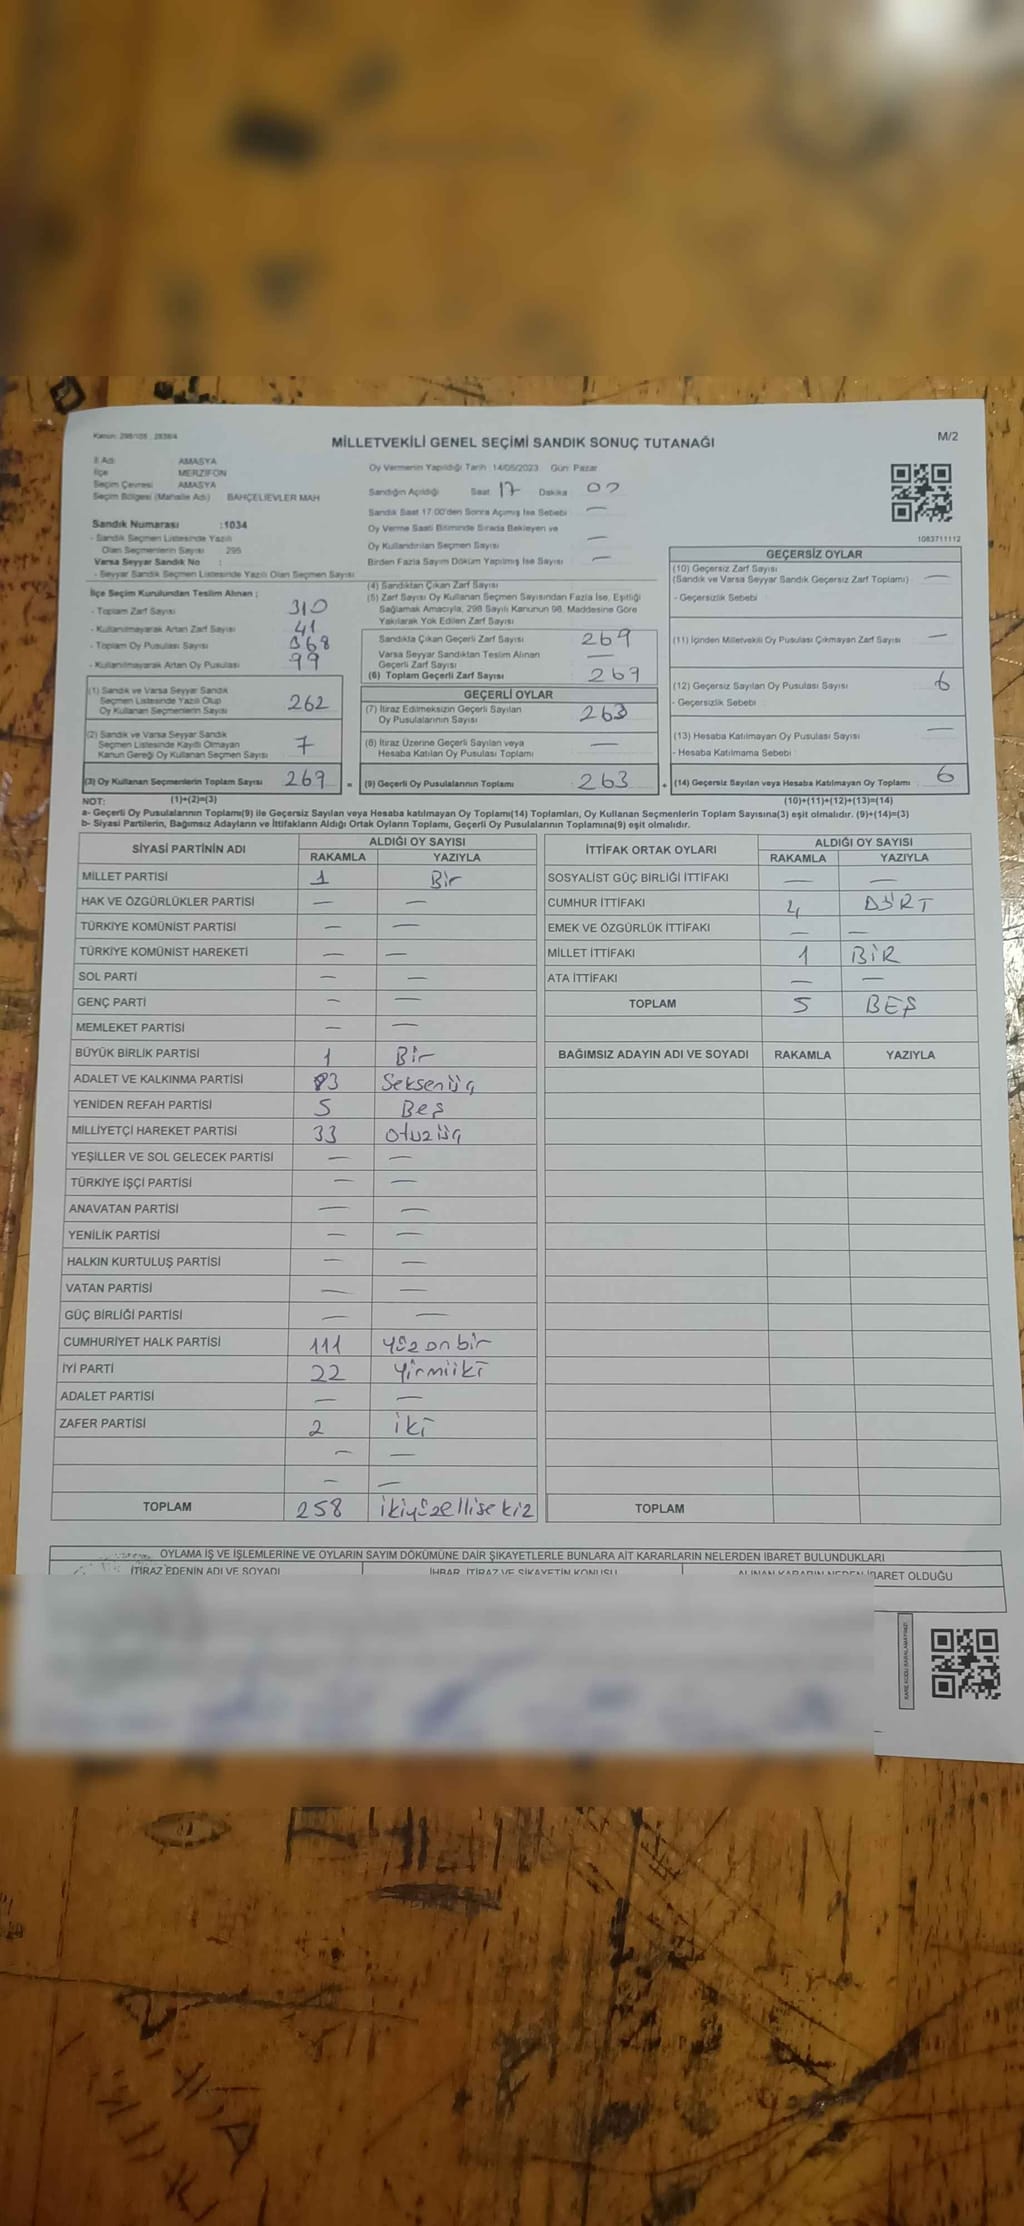 Kanun: 298/105 , 2839/4
MİLLETVEKİLİ GENEL SEÇİMİ SANDIK SONUÇ TUTANAĞI
M/2
İl Adı AMASYA
İlçe MERZİFON
Seçim Çevresi AMASYA
Seçim Bölgesi (Mahalle Adı) BAHÇELİEVLER MAH
Sandık Numarası :1034
- Sandık Seçmen Listesinde Yazılı
Olan Seçmenlerin Sayısı 295
Varsa Seyyar Sandık No :
- Seyyar Sandık Seçmen Listesinde Yazılı Olan Seçmen Sayısı
İlçe Seçim Kurulundan Teslim Alınan ;
- Toplam Zarf Sayısı 310
- Kullanılmayarak Artan Zarf Sayısı 41
- Toplam Oy Pusulası Sayısı 368
- Kullanılmayarak Artan Oy Pusulası 99
(1) Sandık ve Varsa Seyyar Sandık
Seçmen Listesinde Yazılı Olup
Oy Kullanan Seçmenlerin Sayısı 262
(2) Sandık ve Varsa Seyyar Sandık
Seçmen Listesinde Kayıtlı Olmayan
Kanun Gereği Oy Kullanan Seçmen Sayısı 7
(3) Oy Kullanan Seçmenlerin Toplam Sayısı 269 =
Oy Vermenin Yapıldığı Tarih : 14/05/2023 Gün: Pazar
Sandığın Açıldığı Saat 17 Dakika 00
Sandık Saat 17:00'den Sonra Açılmış İse Sebebi : —
Oy Verme Saati Bitiminde Sırada Bekleyen ve
Oy Kullandırılan Seçmen Sayısı —
Birden Fazla Sayım Döküm Yapılmış İse Sayısı —
(4) Sandıktan Çıkan Zarf Sayısı
(5) Zarf Sayısı Oy Kullanan Seçmen Sayısından Fazla İse, Eşitliği
Sağlamak Amacıyla, 298 Sayılı Kanunun 98. Maddesine Göre
Yakılarak Yok Edilen Zarf Sayısı
Sandıkta Çıkan Geçerli Zarf Sayısı 269
Varsa Seyyar Sandıktan Teslim Alınan
Geçerli Zarf Sayısı —
(6) Toplam Geçerli Zarf Sayısı 269
GEÇERLİ OYLAR
(7) İtiraz Edilmeksizin Geçerli Sayılan
Oy Pusulalarının Sayısı 263
(8) İtiraz Üzerine Geçerli Sayılan veya
Hesaba Katılan Oy Pusulası Toplamı —
(9) Geçerli Oy Pusulalarının Toplamı 263 +
1083711112
GEÇERSİZ OYLAR
(10) Geçersiz Zarf Sayısı
(Sandık ve Varsa Seyyar Sandık Geçersiz Zarf Toplamı) —
- Geçersizlik Sebebi
(11) İçinden Milletvekili Oy Pusulası Çıkmayan Zarf Sayısı —
(12) Geçersiz Sayılan Oy Pusulası Sayısı 6
- Geçersizlik Sebebi
(13) Hesaba Katılmayan Oy Pusulası Sayısı —
- Hesaba Katılmama Sebebi
(14) Geçersiz Sayılan veya Hesaba Katılmayan Oy Toplamı 6
NOT: (1)+(2)=(3) (10)+(11)+(12)+(13)=(14)
a- Geçerli Oy Pusulalarının Toplamı(9) ile Geçersiz Sayılan veya Hesaba katılmayan Oy Toplamı(14) Toplamları, Oy Kullanan Seçmenlerin Toplam Sayısına(3) eşit olmalıdır. (9)+(14)=(3)
b- Siyasi Partilerin, Bağımsız Adayların ve İttifakların Aldığı Ortak Oyların Toplamı, Geçerli Oy Pusulalarının Toplamına(9) eşit olmalıdır.
SİYASİ PARTİNİN ADI ALDIĞI OY SAYISI
RAKAMLA YAZIYLA
MİLLET PARTİSİ 1 Bir
HAK VE ÖZGÜRLÜKLER PARTİSİ — —
TÜRKİYE KOMÜNİST PARTİSİ — —
TÜRKİYE KOMÜNİST HAREKETİ — —
SOL PARTİ — —
GENÇ PARTİ — —
MEMLEKET PARTİSİ — —
BÜYÜK BİRLİK PARTİSİ 1 Bir
ADALET VE KALKINMA PARTİSİ 83 Seksenüç
YENİDEN REFAH PARTİSİ 5 Beş
MİLLİYETÇİ HAREKET PARTİSİ 33 otuzüç
YEŞİLLER VE SOL GELECEK PARTİSİ — —
TÜRKİYE İŞÇİ PARTİSİ — —
ANAVATAN PARTİSİ — —
YENİLİK PARTİSİ — —
HALKIN KURTULUŞ PARTİSİ — —
VATAN PARTİSİ — —
GÜÇ BİRLİĞİ PARTİSİ — —
CUMHURİYET HALK PARTİSİ 111 yüzonbir
İYİ PARTİ 22 yirmiiki
ADALET PARTİSİ — —
ZAFER PARTİSİ 2 iki
— —
— —
TOPLAM 258 ikiyüzellisekiz
İTTİFAK ORTAK OYLARI ALDIĞI OY SAYISI
RAKAMLA YAZIYLA
SOSYALİST GÜÇ BİRLİĞİ İTTİFAKI — —
CUMHUR İTTİFAKI 4 DÖRT
EMEK VE ÖZGÜRLÜK İTTİFAKI — —
MİLLET İTTİFAKI 1 BİR
ATA İTTİFAKI — —
TOPLAM 5 BEŞ
BAĞIMSIZ ADAYIN ADI VE SOYADI RAKAMLA YAZIYLA
TOPLAM
OYLAMA İŞ VE İŞLEMLERİNE VE OYLARIN SAYIM DÖKÜMÜNE DAİR ŞİKAYETLERLE BUNLARA AİT KARARLARIN NELERDEN İBARET BULUNDUKLARI
İTİRAZ EDENİN ADI VE SOYADI İHBAR, İTİRAZ VE ŞİKAYETİN KONUSU ALINAN KARARIN NEDEN İBARET OLDUĞU
KARE KODU KARALAMAYINIZ!